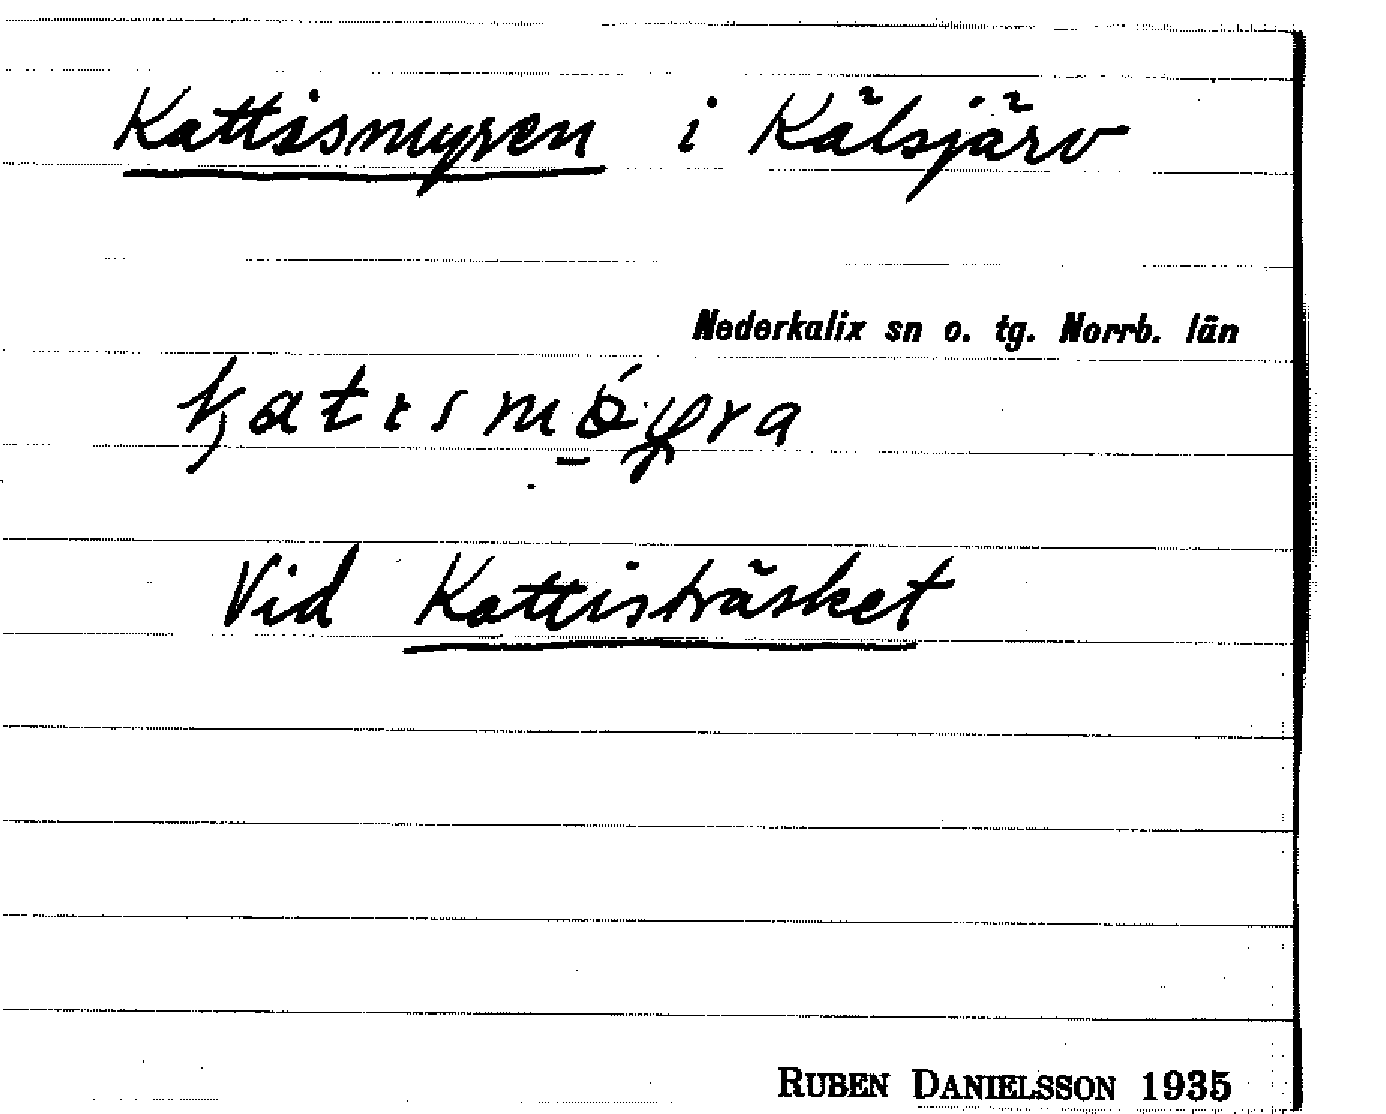 Kattismyren i Kälsjärv
Nederkalix sn o. tg. Norrb. län
Vid Kattisträsket
RUBEN DANIELSSON 1935